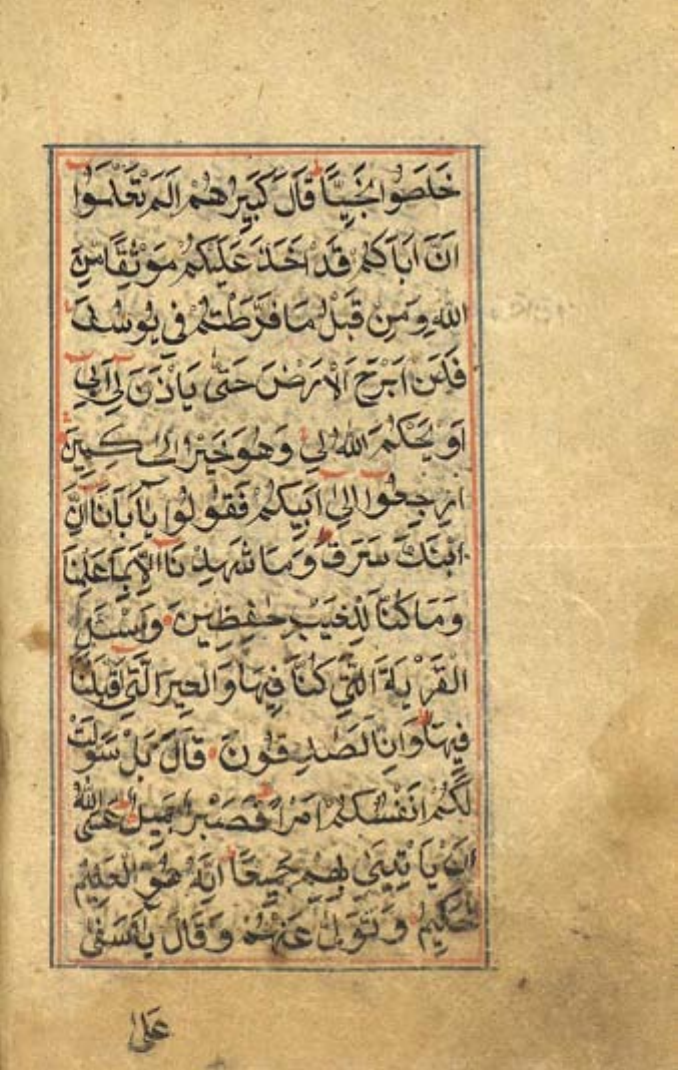 خَلَصُوا نَجِيًّا قَالَ كَبِيرُهُمْ اَلَمْ تَعْلَمُوا
اَنَّ اَبَاكُمْ قَدْ اَخَذَ عَلَيْكُمْ مَوْثِقًا مِنَ
اللّٰهِ وَمِنْ قَبْلُ مَا فَرَّطْتُمْ فِى يُوسُفَ
فَلَنْ اَبْرَحَ الْاَرْضَ حَتّٰى يَاْذَنَ لِى اَبِى
اَوْ يَحْكُمَ اللّٰهُ لِى وَهُوَ خَيْرُ الْحٰكِمِينَ
اِرْجِعُوا اِلٰى اَبِيكُمْ فَقُولُوا يَآ اَبَانَا اِنَّ
ابْنَكَ سَرَقَ وَمَا شَهِدْنَا اِلَّا بِمَا عَلِمْنَا
وَمَا كُنَّا لِلْغَيْبِ حٰفِظِينَ وَسْئَلِ
الْقَرْيَةَ الَّتِى كُنَّا فِيهَا وَالْعِيرَ الَّتِى اَقْبَلْنَا
فِيهَا وَاِنَّا لَصٰدِقُونَ قَالَ بَلْ سَوَّلَتْ
لَكُمْ اَنْفُسُكُمْ اَمْرًا فَصَبْرٌ جَمِيلٌ عَسَى اللّٰهُ
اَنْ يَاْتِيَنِى بِهِمْ جَمِيعًا اِنَّهُ هُوَ الْعَلِيمُ
الْحَكِيمُ وَتَوَلّٰى عَنْهُمْ وَقَالَ يَآ اَسَفٰى
عَلٰى